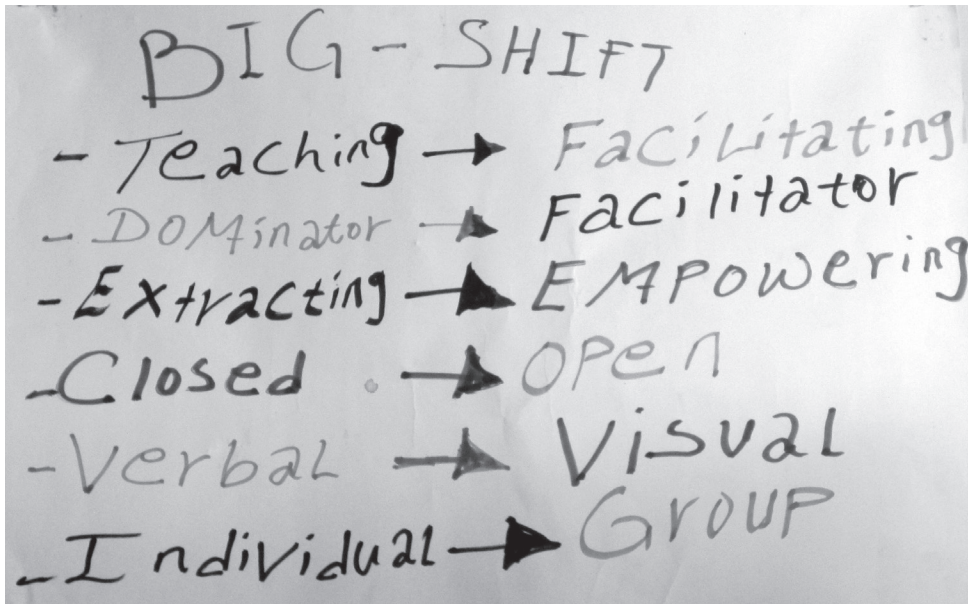 BIG - SHIFT
- Teaching → Facilitating
- DOMinator → Facilitator
- Extracting → EMPowering
- Closed → OPen
- Verbal → Visual
- Individual → GrouP